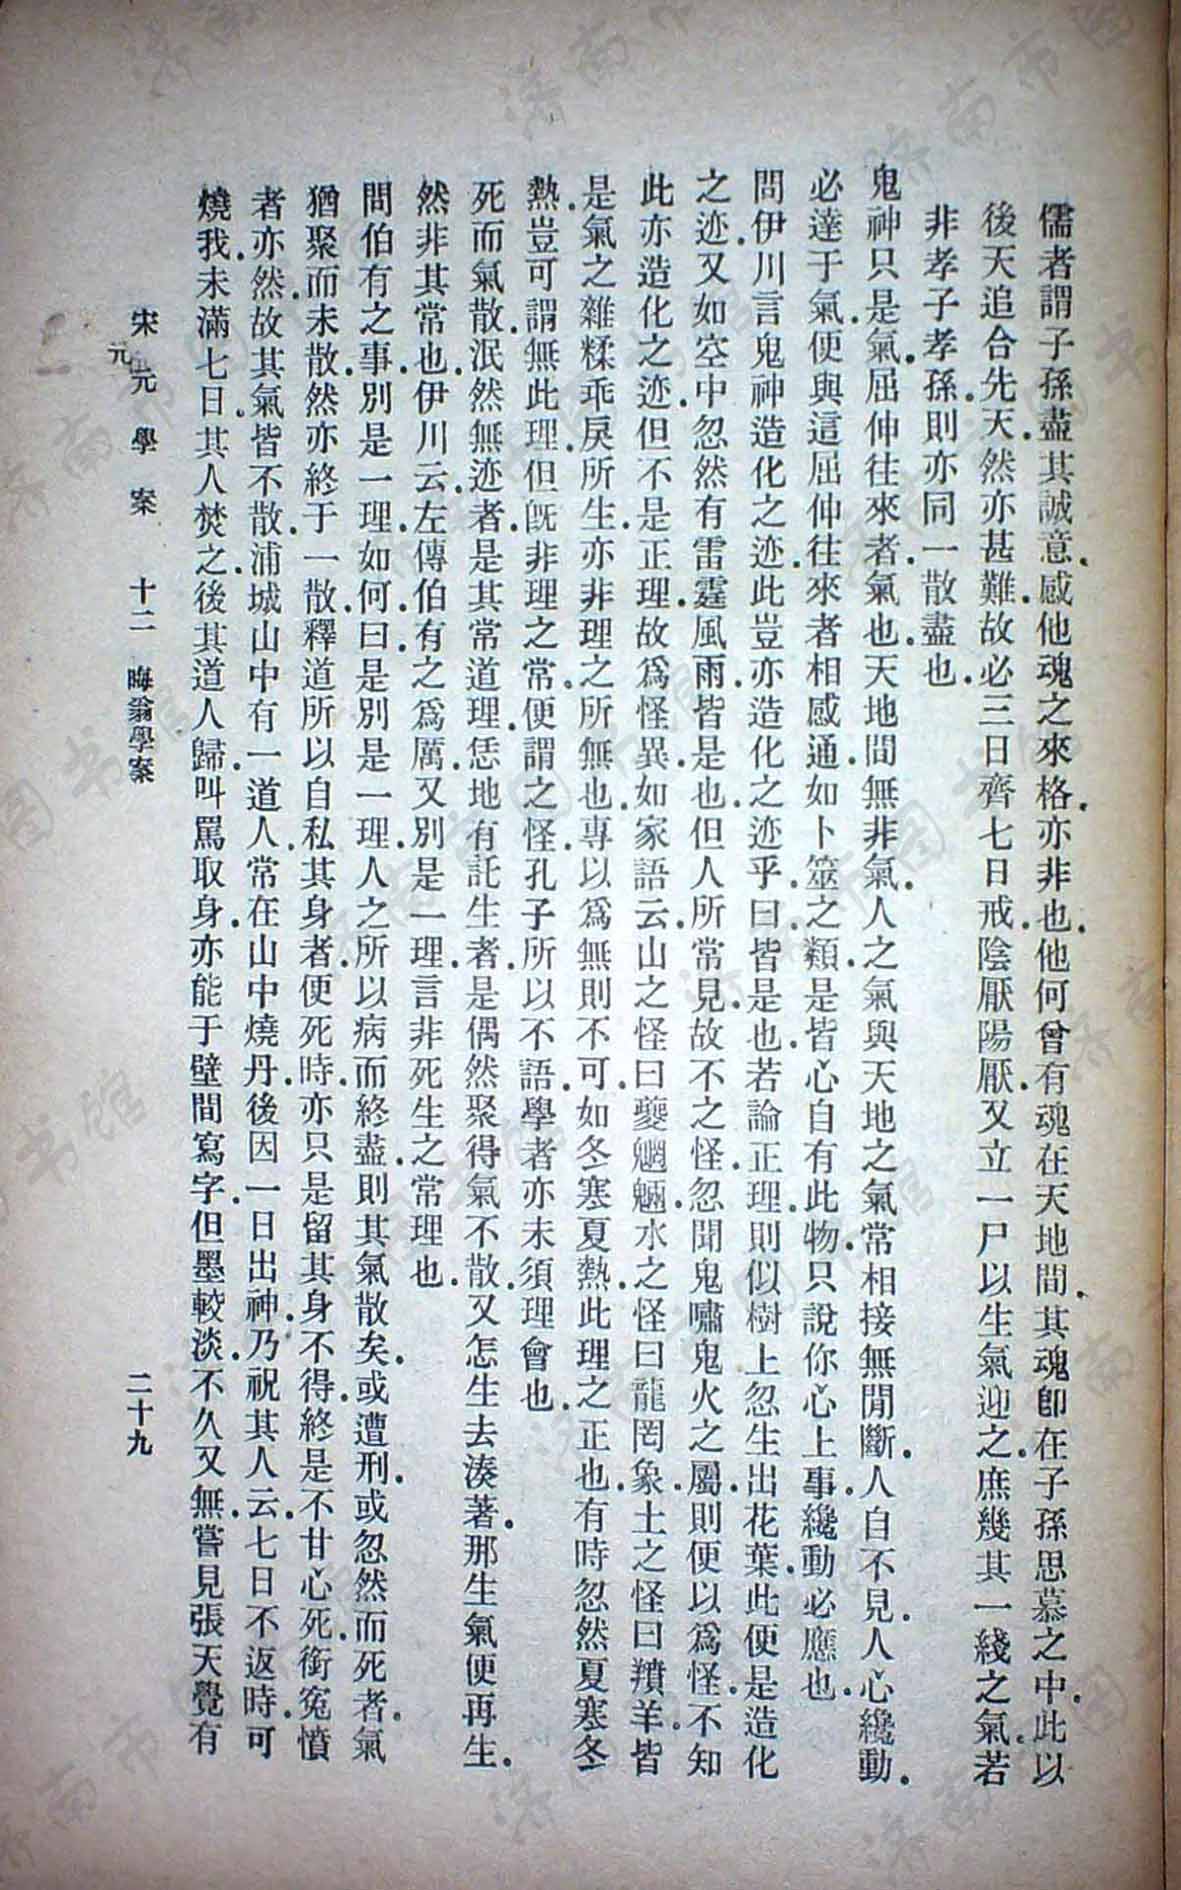 儒者謂子孫盡其誠意.感他魂之來格.亦非也.他何曾有魂在天地間.其魂卽在子孫思慕之中.此以
後天追合先天.然亦甚難.故必三日齊七日戒.陰厭陽厭.又立一尸以生氣迎之.庶幾其一綫之氣.若
非孝子孝孫.則亦同一散盡也.
鬼神只是氣.屈伸往來者.氣也.天地間無非氣.人之氣與天地之氣常相接無間斷.人自不見.人心纔動.
必達于氣.便與這屈伸往來者相感通.如卜筮之類.是皆心自有此物.只說你心上事.纔動必應也.
問伊川言鬼神造化之迹.此豈亦造化之迹乎.曰皆是也.若論正理.則似樹上忽生出花葉.此便是造化
之迹.又如空中忽然有雷霆風雨.皆是也.但人所常見.故不之怪.忽聞鬼嘯鬼火之屬.則便以爲怪.不知
此亦造化之迹.但不是正理.故爲怪異.如家語云.山之怪曰夔魍魎.水之怪曰龍罔象.土之怪曰羵羊.皆
是氣之雜糅乖戾所生.亦非理之所無也.專以爲無則不可.如冬寒夏熱.此理之正也.有時忽然夏寒冬
熱.豈可謂無此理.但旣非理之常.便謂之怪.孔子所以不語.學者亦未須理會也.
死而氣散.泯然無迹者.是其常道理.恁地有託生者.是偶然聚得氣不散.又怎生去湊著那生氣.便再生.
然非其常也.伊川云.左傳伯有之爲厲.又別是一理.言非死生之常理也.
問伯有之事.別是一理.如何.曰.是別是一理.人之所以病而終盡.則其氣散矣.或遭刑.或忽然而死者.氣
猶聚而未散.然亦終于一散.釋道所以自私其身者.便死時.亦只是留其身不得.終是不甘心死.銜冤憤
者亦然.故其氣皆不散.浦城山中有一道人.常在山中燒丹.後因一日出神.乃祝其人云.七日不返時.可
燒我.未滿七日.其人焚之.後其道人歸.叫罵取身.亦能于壁間寫字.但墨較淡.不久又無.嘗見張天覺有
宋元學案 十二 晦翁學案 二十九
元